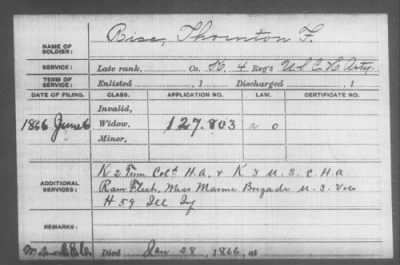 NAME OF SOLDIER: Rise, Thornton F.
SERVICE: Late rank, Co. B. 4 Reg't U.S.C.H. Arty.
TERM OF SERVICE: Enlisted , 1 Discharged , 1
DATE OF FILING. CLASS. APPLICATION NO. LAW. CERTIFICATE NO.
Invalid,
1866 June 6 Widow, 127.803
Minor,
K 2 Tenn Cold H.A. & K 3 U.S.C.H.A.
ADDITIONAL SERVICES: Ram Fleet, Miss Marine Brigade U.S. Vols
H 59 Ill
REMARKS:
Died Jan 28, 1866, at